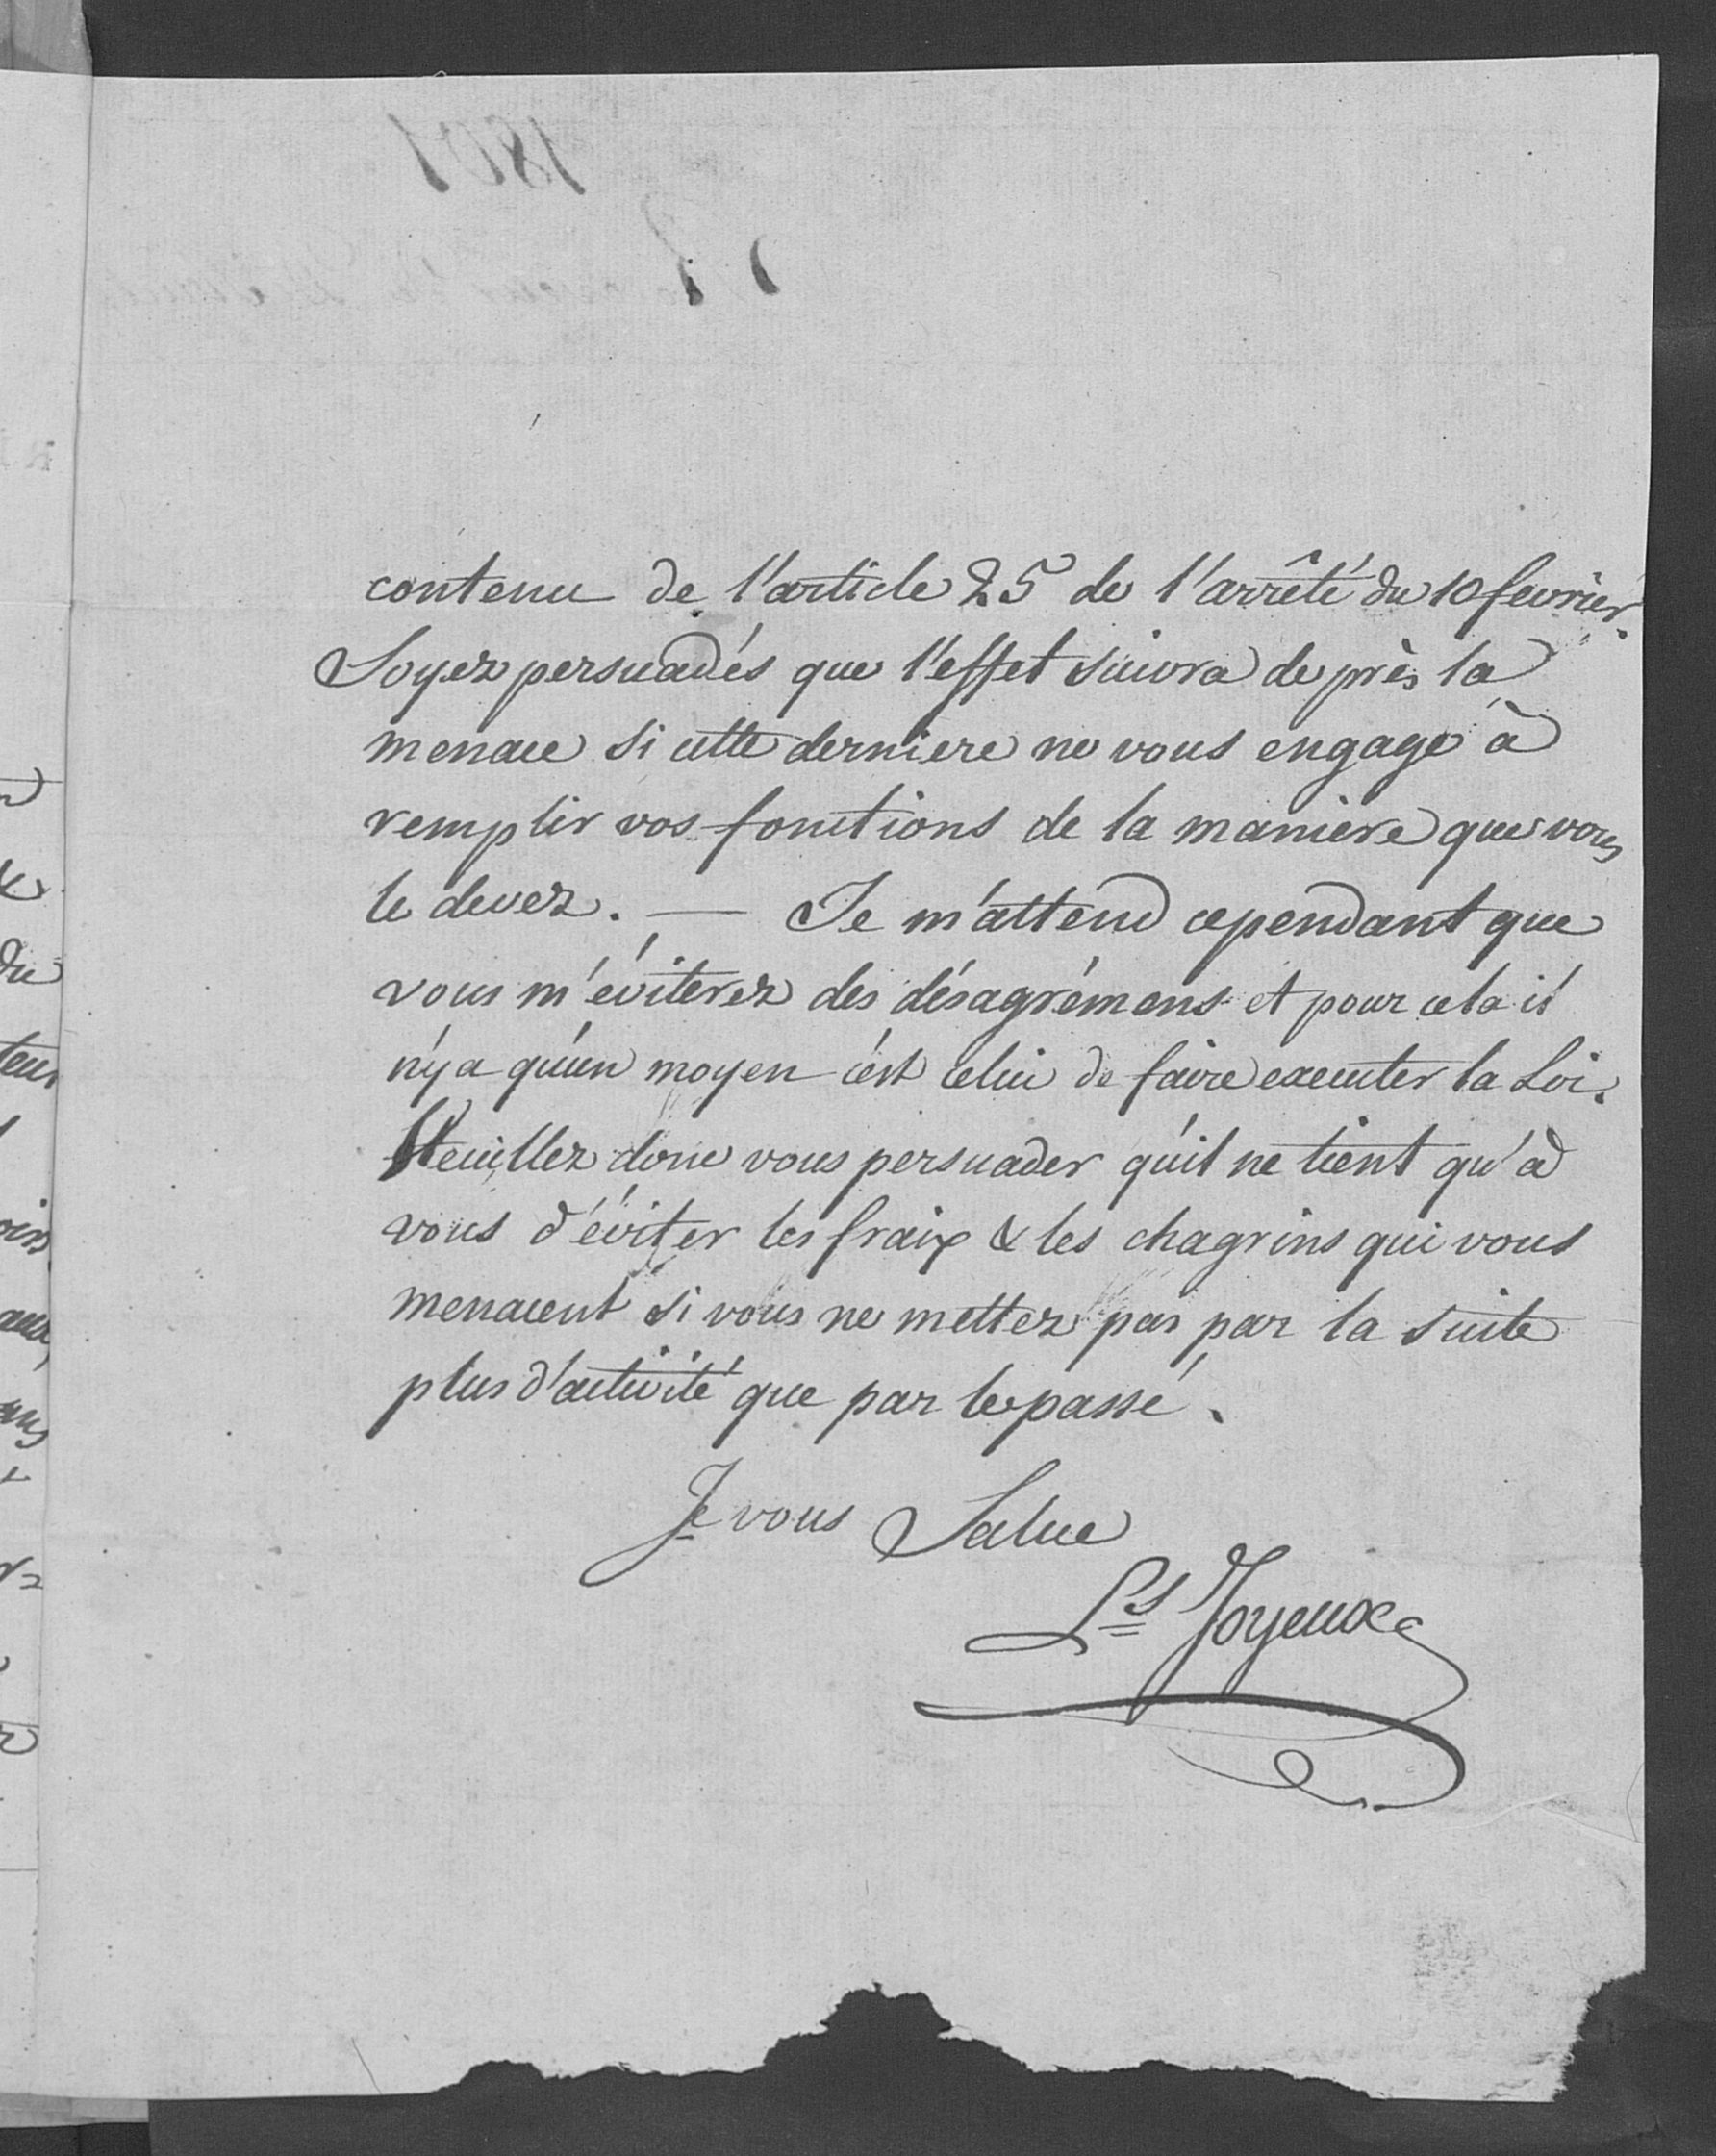 contenu de l'article 25 de l'arrêté du 10 fevrier.
Soyez persuadés que l'effet suivra de près la
menace si cette derniere ne vous engage à
remplir vos fonctions de la manière que vous
le devez. — Je m'attend cependant que
vous m'éviterez des désagrémens et pour cela il
n'y a qu'un moyen c'est celui de faire executer la Loi.
Veuillez donc vous persuader qu'il ne tient qu'à
vous d'éviter les fraix & les chagrins qui vous
menacent si vous ne mettez pas par la suite
plus d'activité que par le passé.
Je vous Salue
Ls Joyeux